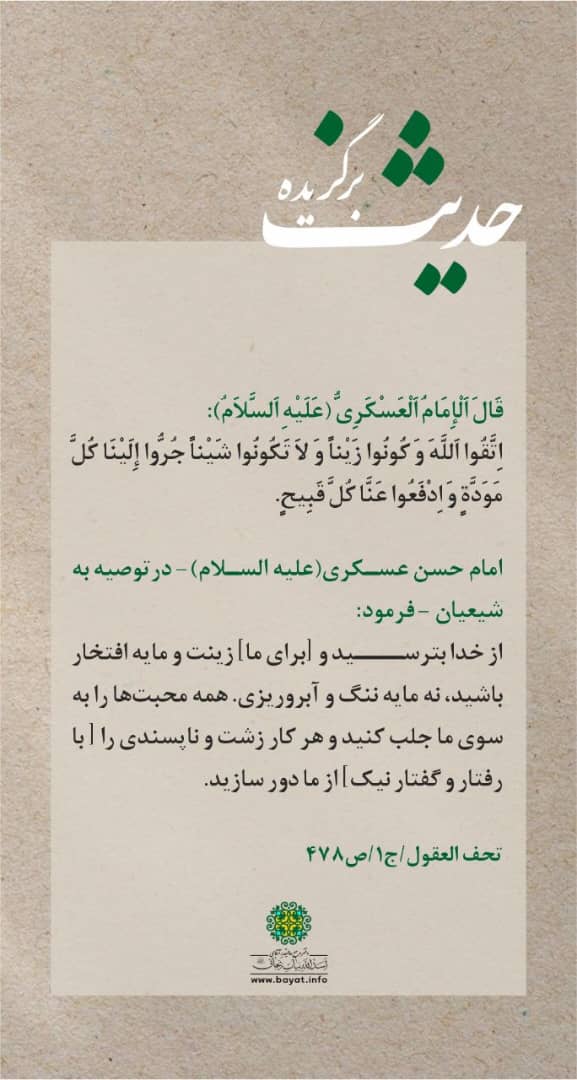 حدیث
برگزیده
قَالَ اَلْإِمَامُ اَلْعَسْكَرِيُّ (عَلَيْهِ اَلسَّلاَمُ):
اِتَّقُوا اَللَّهَ وَ كُونُوا زَيْناً وَ لاَ تَكُونُوا شَيْناً جُرُّوا إِلَيْنَا كُلَّ
مَوَدَّةٍ وَ اِدْفَعُوا عَنَّا كُلَّ قَبِيحٍ.
امام حسن عسـکری(علیه السـلام) – در توصیه به
شیعیان – فرمود:
از خدا بترسـید و [برای ما] زینت و مایه افتخار
باشید، نه مایه ننگ و آبروریزی. همه محبت‌ها را به
سوی ما جلب کنید و هر کار زشت و ناپسندی را [ با
رفتار و گفتار نیک] از ما دور سازید.
تحف العقول/ج۱/ص۴۷۸
www.bayat.info